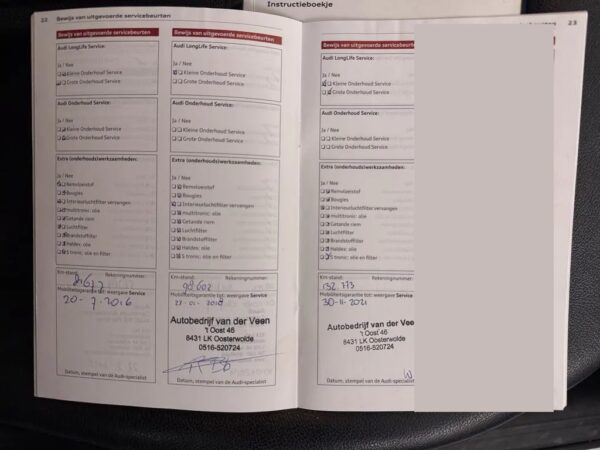 Instructieboekje
22 Bewijs van uitgevoerde servicebeurten
Bewijs van uitgevoerde servicebeurten
Audi LongLife Service:
Ja / Nee
Kleine Onderhoud Service
Grote Onderhoud Service
Audi Onderhoud Service:
Ja / Nee
Kleine Onderhoud Service
Grote Onderhoud Service
Extra (onderhouds)werkzaamheden:
Ja / Nee
Remvloeistof
Bougies
Interieurluchtfilter vervangen
multitronic: olie
Getande riem
Luchtfilter
Brandstoffilter
Haldex: olie
S tronic: olie en filter
Km-stand: Rekeningnummer:
Mobiliteitsgarantie tot: weergave Service
20-7-2016
Datum, stempel van de Audi-specialist
Bewijs van uitgevoerde servicebeurten
Audi LongLife Service:
Ja / Nee
Kleine Onderhoud Service
Grote Onderhoud Service
Audi Onderhoud Service:
Ja / Nee
Kleine Onderhoud Service
Grote Onderhoud Service
Extra (onderhouds)werkzaamheden:
Ja / Nee
Remvloeistof
Bougies
Interieurluchtfilter vervangen
multitronic: olie
Getande riem
Luchtfilter
Brandstoffilter
Haldex: olie
S tronic: olie en filter
Km-stand: Rekeningnummer:
98602
Mobiliteitsgarantie tot: weergave Service
Autobedrijf van der Veen
't Oost 46
8431 LK Oosterwolde
0516-520724
Datum, stempel van de Audi-specialist
23
Bewijs van uitgevoerde servicebeurten
Audi LongLife Service:
Ja / Nee
Kleine Onderhoud Service
Grote Onderhoud Service
Audi Onderhoud Service:
Ja / Nee
Kleine Onderhoud Service
Grote Onderhoud Service
Extra (onderhouds)werkzaamheden:
Ja / Nee
Remvloeistof
Bougies
Interieurluchtfilter vervangen
multitronic: olie
Getande riem
Luchtfilter
Brandstoffilter
Haldex: olie
S tronic: olie en filter
Km-stand: Rekeningnummer:
132.773
Mobiliteitsgarantie tot: weergave Service
30-11-2021
Autobedrijf van der Vee
't Oost 46
8431 LK Oosterwolde
0516-520724
W
Datum, stempel van de Audi-specialist